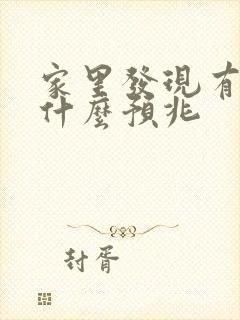 家里發現有
什麼預兆
封胥